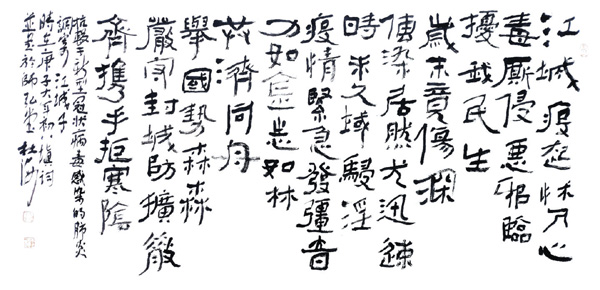 江城疫起怵人心
毒厮侵惡邪臨
擾我民生
歲末竟傷深
傳染居然尤迅速
時未久域駸淫
疫情緊急發疆音
力如金志如林
共濟同舟
舉國勢森森
嚴密封城防擴散
齊攜手拒寒陰
抗擊于新型冠狀病毒感染的肺炎
調寄江城子
時在庚子大年初一填詞
並書於師弘堂